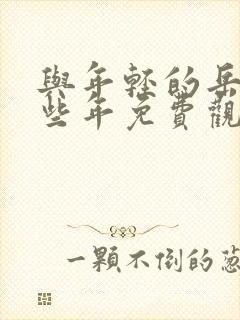 與年輕的岳
些年免費觀
一顆不倒的蔥